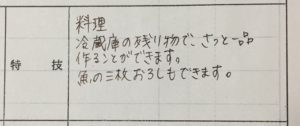 特技
料理
冷蔵庫の残り物で、さっと一品
作ることができます。
魚の三枚おろしもできます。